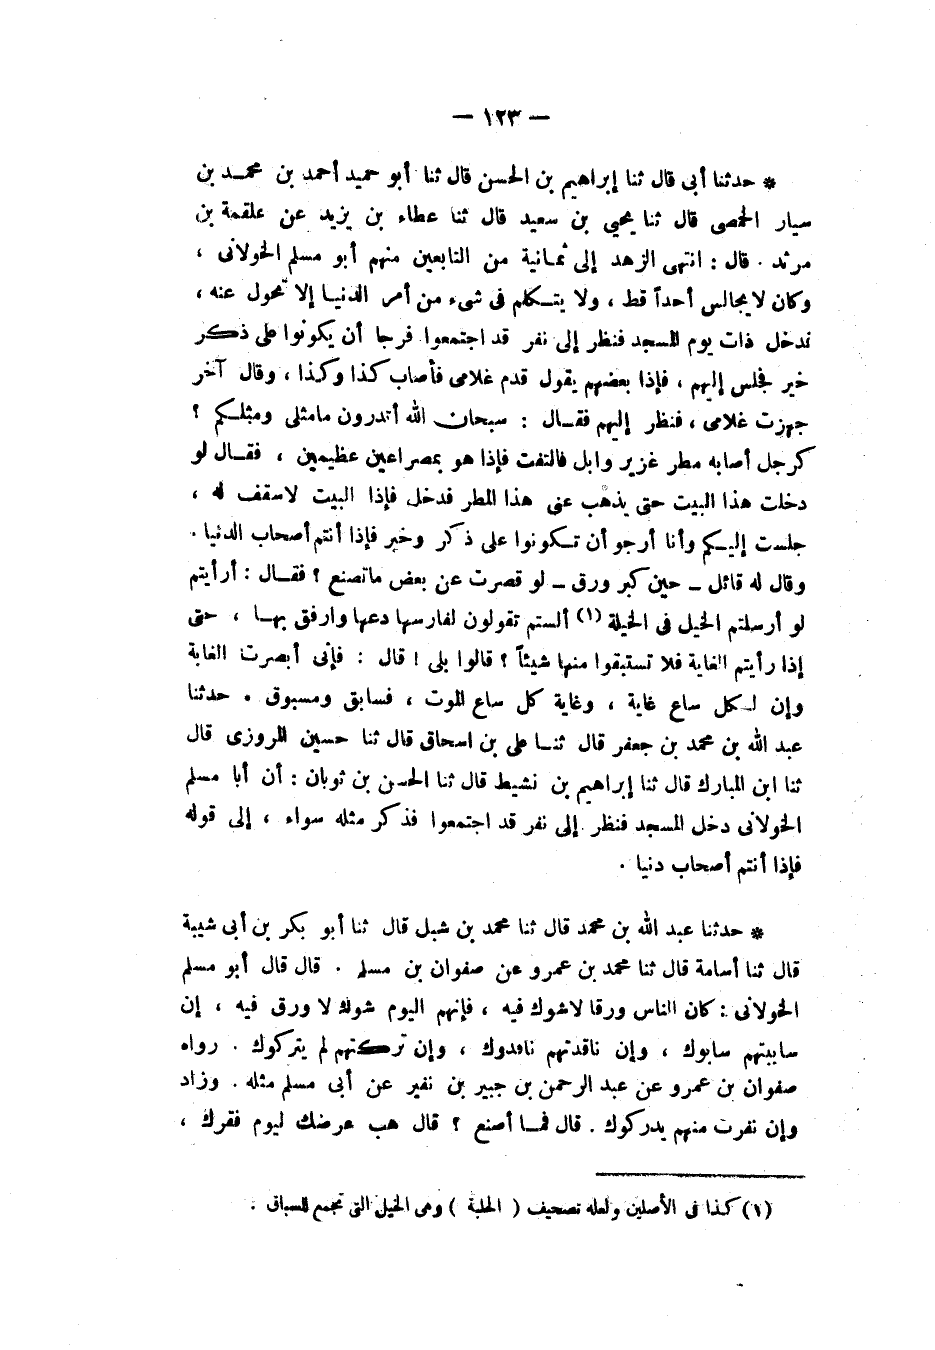 — ١٢٣ —
* حدثنا أبى قال ثنا إبراهيم بن الحسن قال ثنا أبو حميد أحمد بن محمد بن
سيار الحمصى قال ثنا يحيى بن سعيد قال ثنا عطاء بن يزيد عن علقمة بن
مرثد . قال : انتهى الزهد إلى ثمانية من التابعين منهم أبو مسلم الخولانى ،
وكان لا يجالس أحداً قط ، ولا يتكلم فى شىء من أمر الدنيا إلا تحول عنه ،
فدخل ذات يوم المسجد فنظر إلى نفر قد اجتمعوا فرجا أن يكونوا على ذكر
خير فجلس إليهم ، فإذا بعضهم يقول قدم غلامى فأصاب كذا وكذا ، وقال آخر
جهزت غلامى ، فنظر إليهم فقال : سبحان الله أتدرون مامثلى ومثلكم ؟
كرجل أصابه مطر غزير وابل فالتفت فإذا هو بمصراعين عظيمين ، فقال لو
دخلت هذا البيت حتى يذهب عنى هذا المطر فدخل فإذا البيت لاسقف له ،
جلست إليكم وأنا أرجو أن تكونوا على ذكر وخير فإذا أنتم أصحاب الدنيا .
وقال له قائل ــ حين كبر ورق ــ لو قصرت عن بعض ماتصنع ؟ فقال : أرأيتم
لو أرسلتم الخيل فى الخيلة (١) ألستم تقولون لفارسها دعها وارفق بها ، حتى
إذا رأيتم الغاية فلا تستبقوا منها شيئاً ؟ قالوا بلى ! قال : فإنى أبصرت الغاية
وإن لكل ساع غاية ، وغاية كل ساع الموت ، فسابق ومسبوق . حدثنا
عبد الله بن محمد بن جعفر قال ثنا على بن اسحاق قال ثنا حسين المروزى قال
ثنا ابن المبارك قال ثنا إبراهيم بن نشيط قال ثنا الحسن بن ثوبان : أن أبا مسلم
الخولانى دخل المسجد فنظر إلى نفر قد اجتمعوا فذكر مثله سواء ، إلى قوله
فإذا أنتم أصحاب دنيا .
* حدثنا عبد الله بن محمد قال ثنا محمد بن شبل قال ثنا أبو بكر بن أبى شيبة
قال ثنا أسامة قال ثنا محمد بن عمرو عن صفوان بن مسلم . قال قال أبو مسلم
الخولانى : كان الناس ورقا لاشوك فيه ، فإنهم اليوم شوك لا ورق فيه ، إن
ساببتهم سابوك ، وإن ناقدتهم ناقدوك ، وإن تركتهم لم يتركوك . رواه
صفوان بن عمرو عن عبد الرحمن بن جبير بن نفير عن أبى مسلم مثله . وزاد
وإن نفرت منهم يدركوك . قال فما أصنع ؟ قال هب عرضك ليوم فقرك ،
(١) كذا فى الأصلين ولعله تصحيف ( الحلبة ) وهى الخيل التى تجمع للسباق .